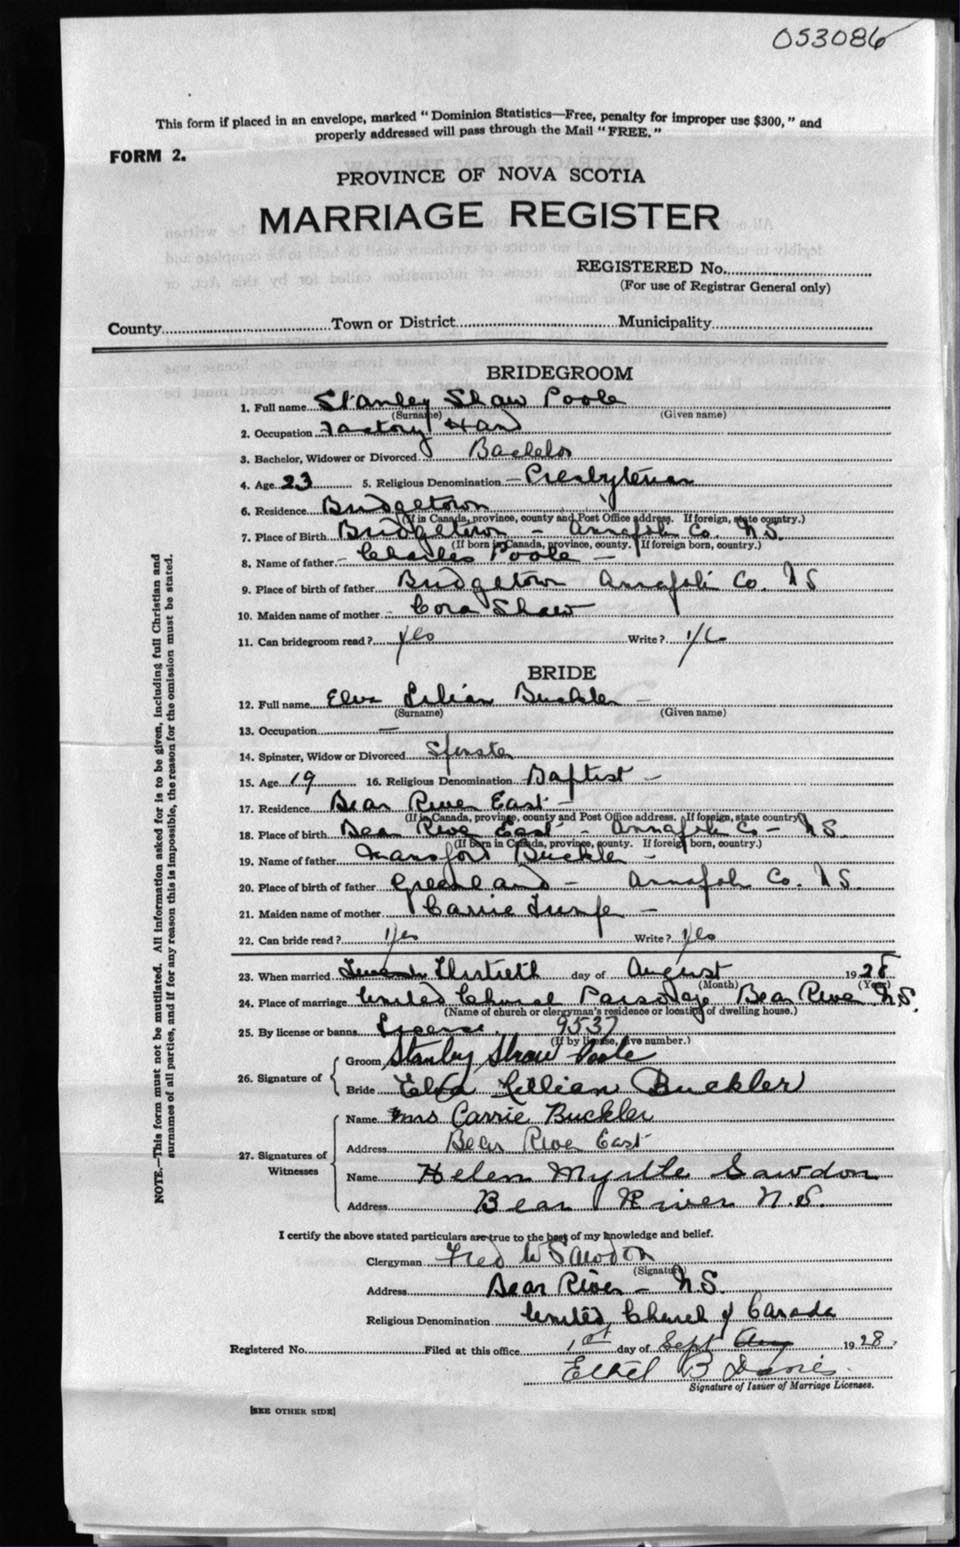 053086
This form if placed in an envelope, marked "Dominion Statistics—Free, penalty for improper use $300," and
properly addressed will pass through the Mail "FREE."
FORM 2.
PROVINCE OF NOVA SCOTIA
MARRIAGE REGISTER
REGISTERED No.
(For use of Registrar General only)
County Town or District Municipality
BRIDEGROOM
1. Full name Stanley Shaw Poole
(Surname) (Given name)
2. Occupation Factory Hand
3. Bachelor, Widower or Divorced Bachelor
4. Age 23 5. Religious Denomination – Presbyterian
6. Residence Bridgetown
(If in Canada, province, county and Post Office address. If foreign, state country.)
7. Place of Birth Bridgetown – Annapolis Co. N.S.
(If born in Canada, province, county. If foreign born, country.)
8. Name of father – Charles Poole –
9. Place of birth of father Bridgetown Annapolis Co. N S
10. Maiden name of mother – Cora Shaw
11. Can bridegroom read? yes Write?
BRIDE
12. Full name Elva Lilian Buckler –
(Surname) (Given name)
13. Occupation —
14. Spinster, Widow or Divorced Spinster
15. Age 19 16. Religious Denomination Baptist –
17. Residence Bear River East –
(If in Canada, province, county and Post Office address. If foreign, state country)
18. Place of birth Bear River East – Annapolis Co – N.S.
(If born in Canada, province, county. If foreign born, country.)
19. Name of father Buckler –
20. Place of birth of father Greenland – Annapolis Co. N S.
21. Maiden name of mother Carrie –
22. Can bride read? Yes Write? Yes
23. When married Thirtieth day of August 1928
(Month) (Year)
24. Place of marriage United Church Parsonage Bear River N.S.
(Name of church or clergyman's residence or location of dwelling house.)
25. By license or banns License. 9537
(If by license, give number.)
26. Signature of
Groom Stanley Shaw Poole
Bride Elva Lillian Buckler
27. Signatures of Witnesses
Name Mrs Carrie Buckler
Address Bear River East
Name Helen Myrtle Sawdon
Address Bear River N.S.
I certify the above stated particulars are true to the best of my knowledge and belief.
Clergyman Fred W Sawdon
(Signature)
Address Bear River – N.S.
Religious Denomination United Church of Canada
Registered No. Filed at this office 1st day of Sept Aug 1928.
Ethel B Davis.
Signature of Issuer of Marriage Licenses.
[SEE OTHER SIDE]
NOTE.—This form must not be mutilated. All information asked for is to be given, including full Christian and
surnames of all parties, and if for any reason this is impossible, the reason for the omission must be stated.